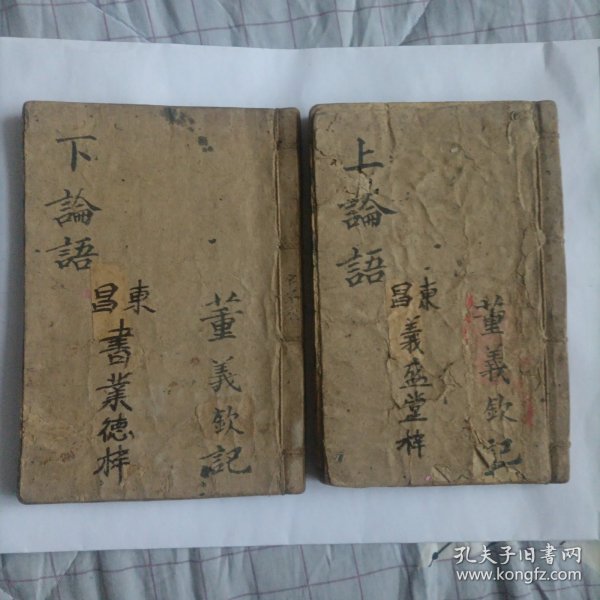 下論語
東昌
書業德梓
董義欽記
上論語
東昌
義盛堂梓
董義欽記
孔夫子旧书网
www.kongfz.com